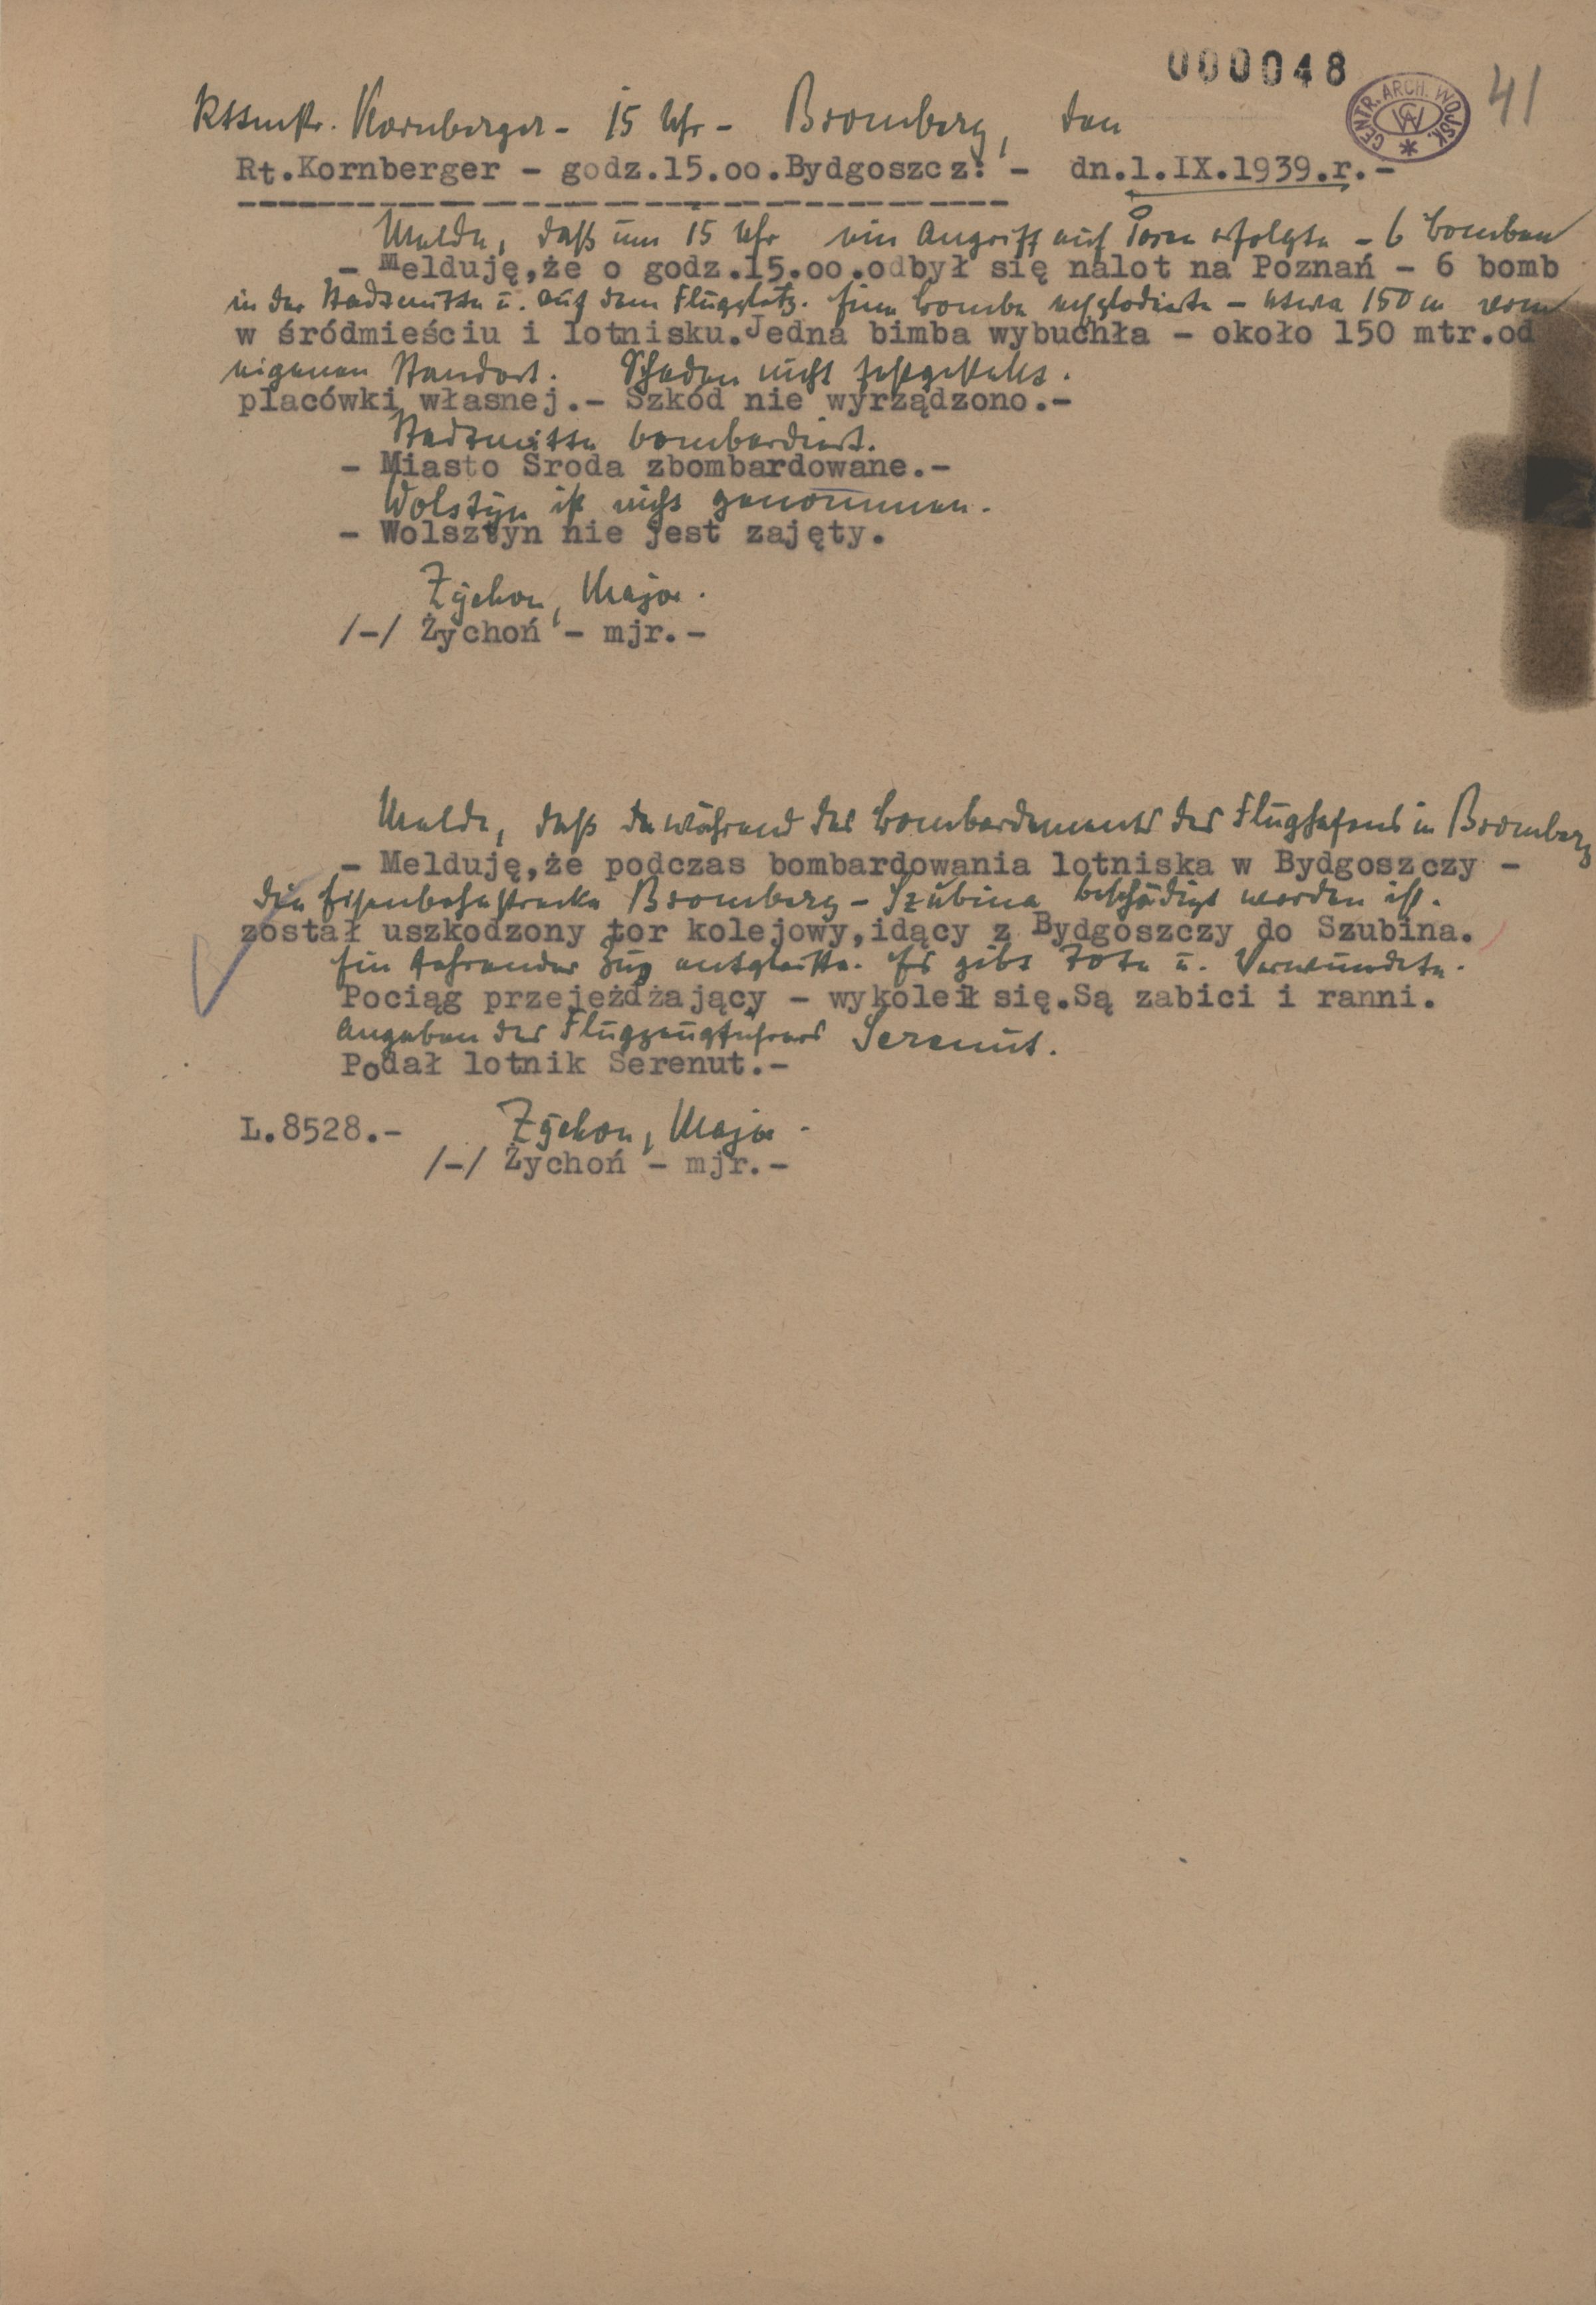 000048
CENTR. ARCH. WOJSK.
41
Rittmstr. Kornberger - 15 Uhr - Bromberg, den
Rt.Kornberger - godz.15.oo.Bydgoszcz: - dn.1.IX.1939.r.-
Melde, daß um 15 Uhr ein Angriff auf Posen erfolgte - 6 Bomben
- Melduję,że o godz.15.oo.odbył się nalot na Poznań - 6 bomb
in der Stadtmitte u. auf dem Flugplatz. Eine Bombe explodierte - etwa 150 m vom
w śródmieściu i lotnisku.Jedna bimba wybuchła - około 150 mtr.od
eigenen Standort. Schaden nicht festgestellt.
placówki własnej.- Szkód nie wyrządzono.-
Stadtmitte bombardiert.
- Miasto Sroda zbombardowane.-
Wolstyn ist nicht genommen.
- Wolsztyn nie jest zajęty.
Zychon, Major.
/-/ Żychoń - mjr.-
Melde, daß während des Bombardements des Flughafens in Bromberg
- Melduję,że podczas bombardowania lotniska w Bydgoszczy -
die Eisenbahnstrecke Bromberg - Szubina beschädigt worden ist.
został uszkodzony tor kolejowy,idący z Bydgoszczy do Szubina.
Ein fahrender Zug entgleiste. Es gibt Tote u. Verwundete.
Pociąg przejeżdżający - wykoleił się.Są zabici i ranni.
Angaben des Flugzeugführers Serenut.
Podał lotnik Serenut.-
L.8528.-
Zychon, Major.
/-/ Żychoń - mjr.-